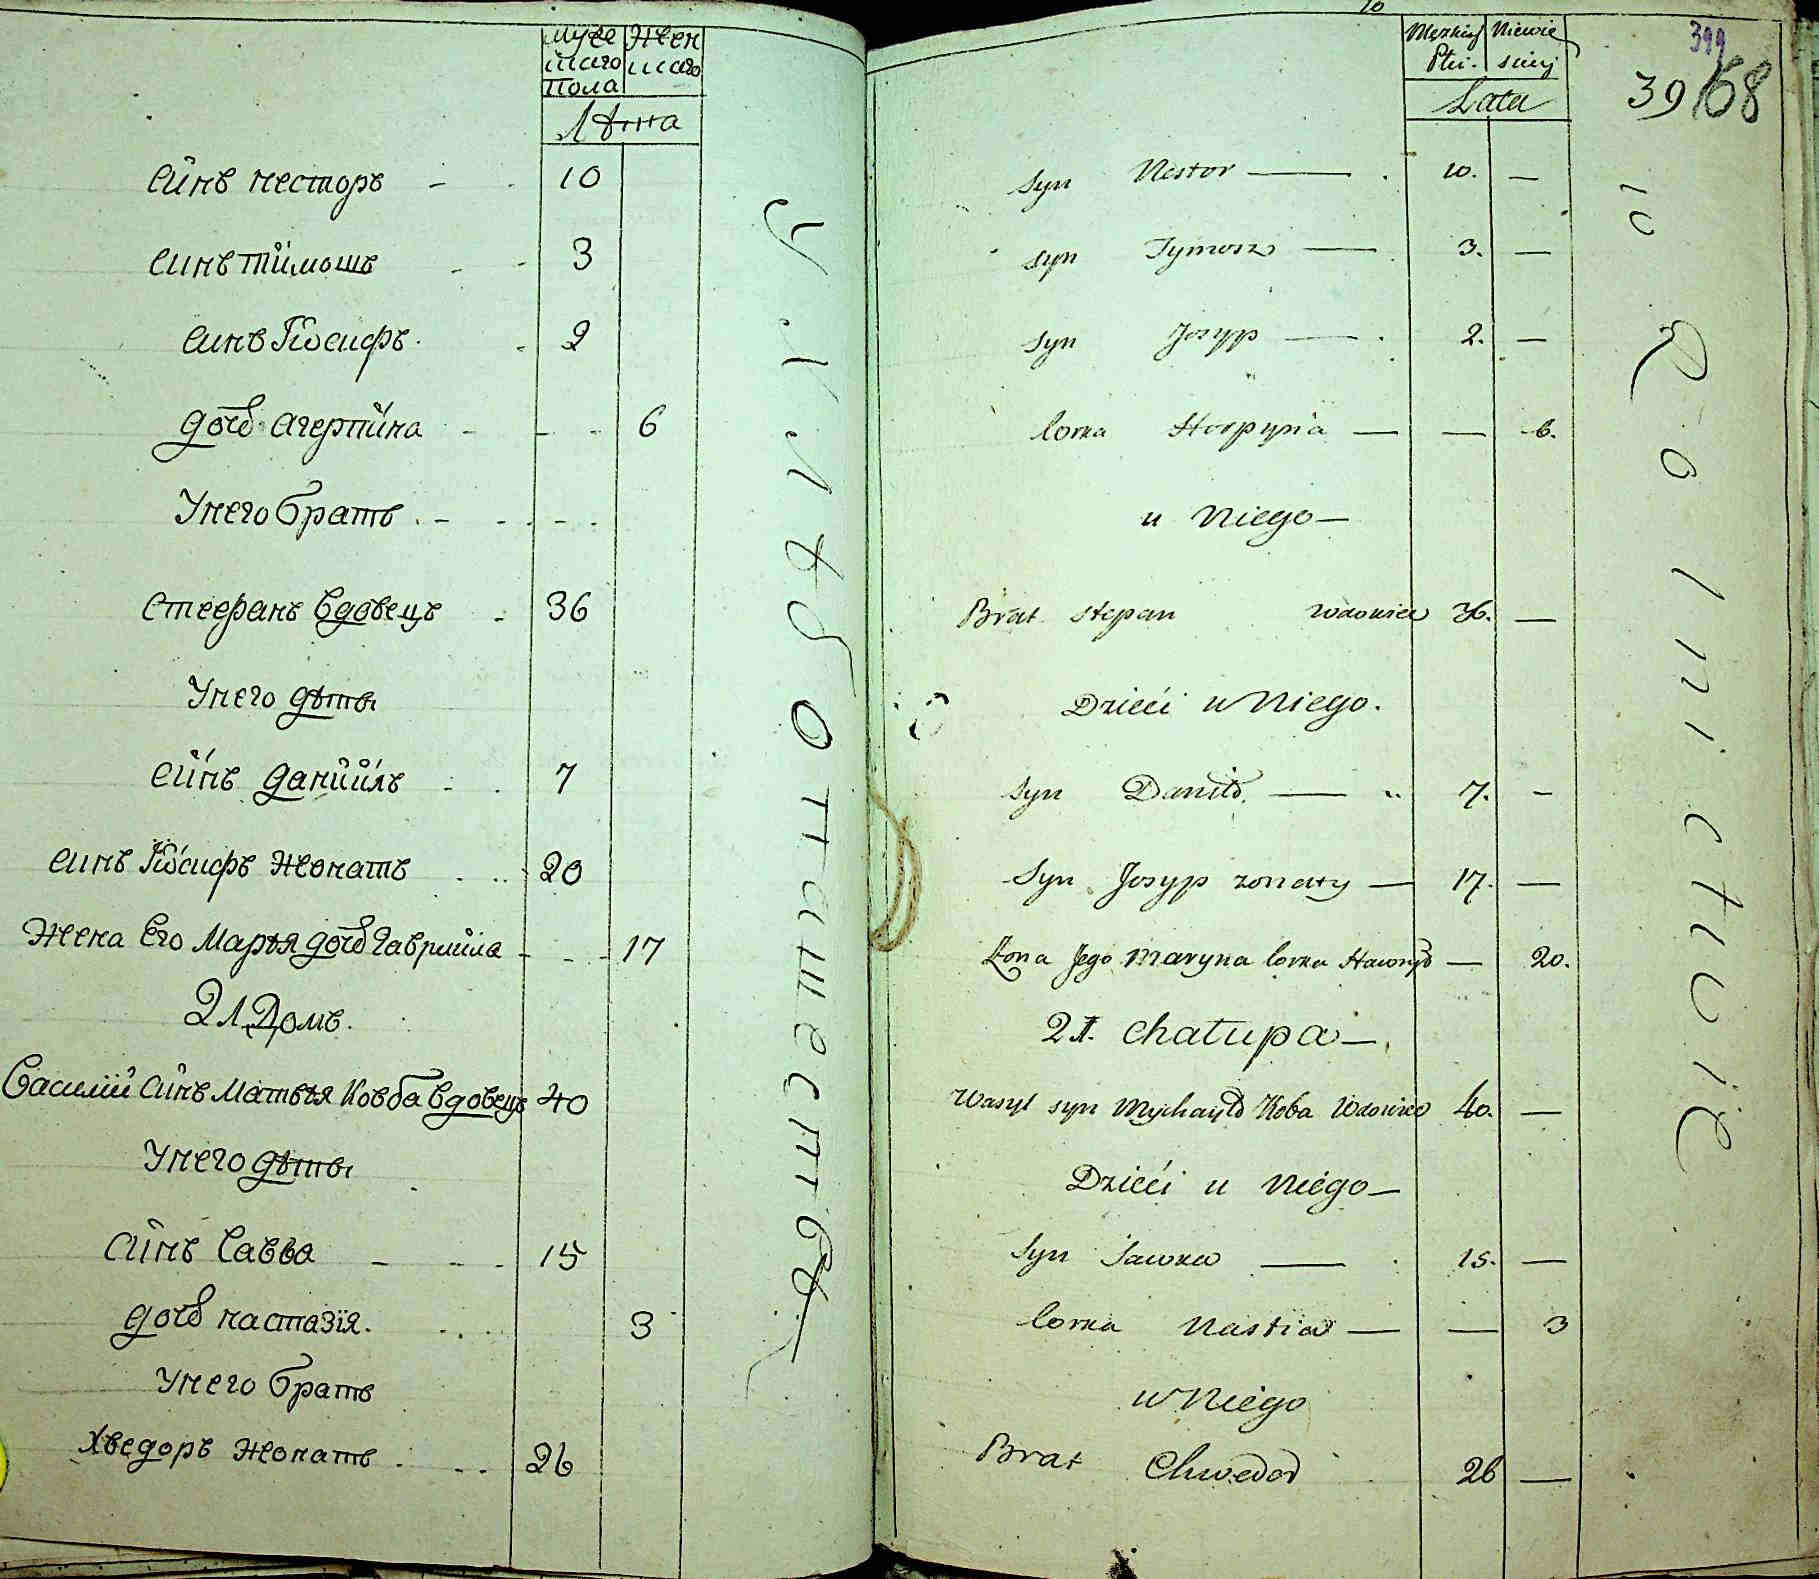 Муже Жен
скаго скаго
Пола
Лѣта
Синъ несторъ - - 10
Синъ тимошъ - - 3
Синъ Іосифъ - 2
дочь Агерпина - - - 6
Унего братъ - - - -
Стефанъ Вдовецъ - 36
Унего дѣты
Синъ даниилъ - - 7
Синъ Іосифъ жонатъ - - 20
Жена Его Марья дочь Гавриила - - - 17
2й Домъ.
Василий Синъ Матвѣя Ковба вдовецъ 40
Унего дѣты
Синъ Савва - - - 15
дочь настазія. - - - 3
Унего братъ
Хведоръ жонатъ - - - 26
10
Męzkiej Niewie
Płci. sciey
Lata
399
39 168
Syn Nestor — 10. —
Syn Tymosz — 3. —
Syn Josyp — 2. —
Corka Horpyna — — 6.
u Niego —
Brat Stepan Wdowiec 36. —
Dzieci u Niego.
Syn Daniło — 7. —
Syn Josyp zonaty — 17. —
Żona Jego Maryna Corka Hawryło — 20.
2 Chałupa —
Wasyl syn Mychayło Koba Wdowiec 40. —
Dzieci u Niego —
Syn Sawka — 15. —
Corka Nastia — — 3
u Niego
Brat Chwedor 26 —
10 Rolnictwie